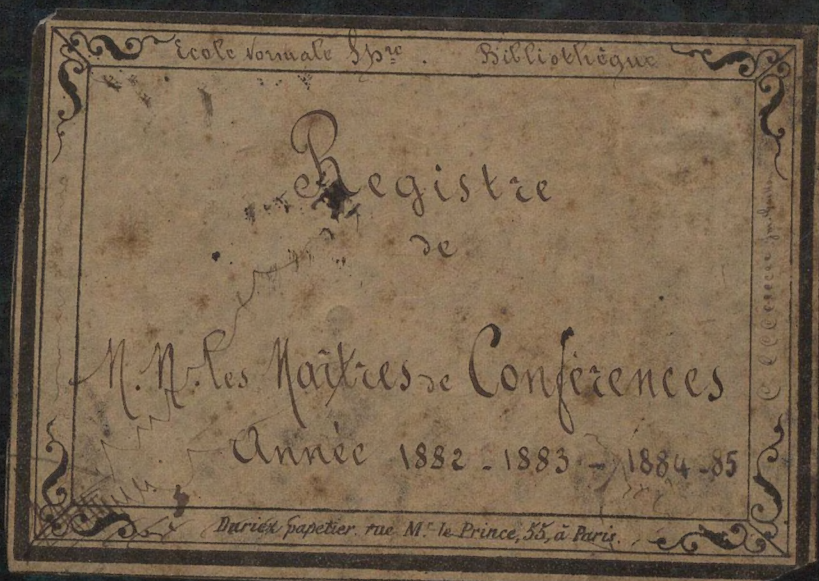 Ecole Normale Spre. Bibliothèque
Registre
de
M.M. les Maîtres de Conférences
Année 1882 - 1883 - 1884-85
Duriex papetier. rue Mr. le Prince, 55, à Paris.